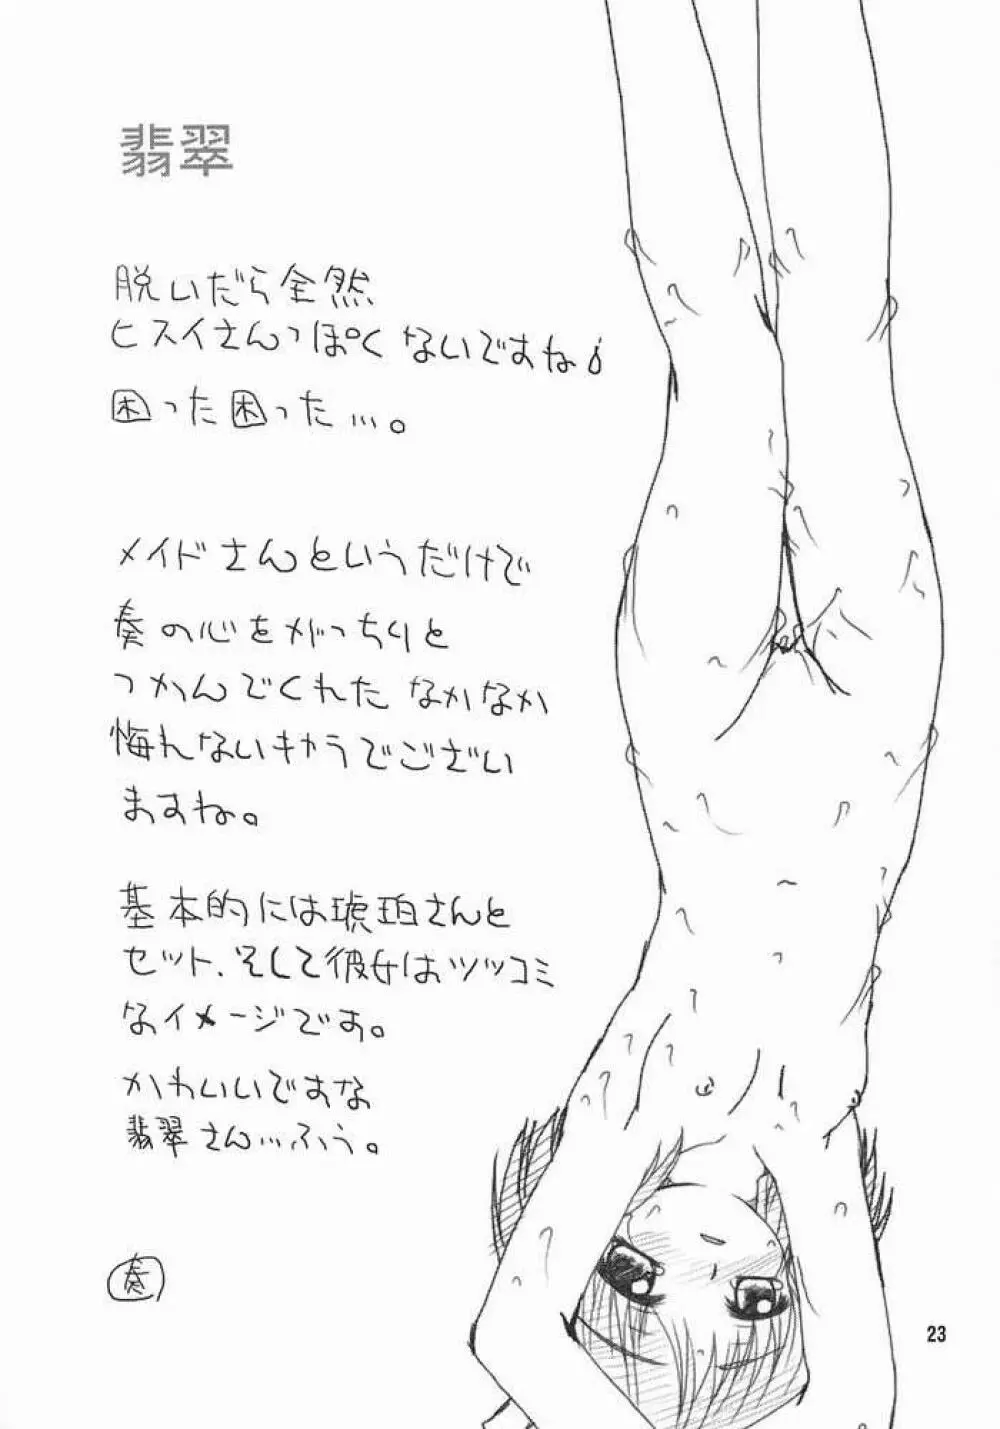 翡翠
脱いだら全然
ヒスイさんっぽくないですね
困った困った…。
メイドさんというだけで
奏の心をがっちりと
つかんでくれたなかなか
侮れないキャラでござい
ますね。
基本的には琥珀さんと
セット、そして彼女はツッコミ
なイメージです。
かわいいですな
翡翠さん…ふう。
奏
23